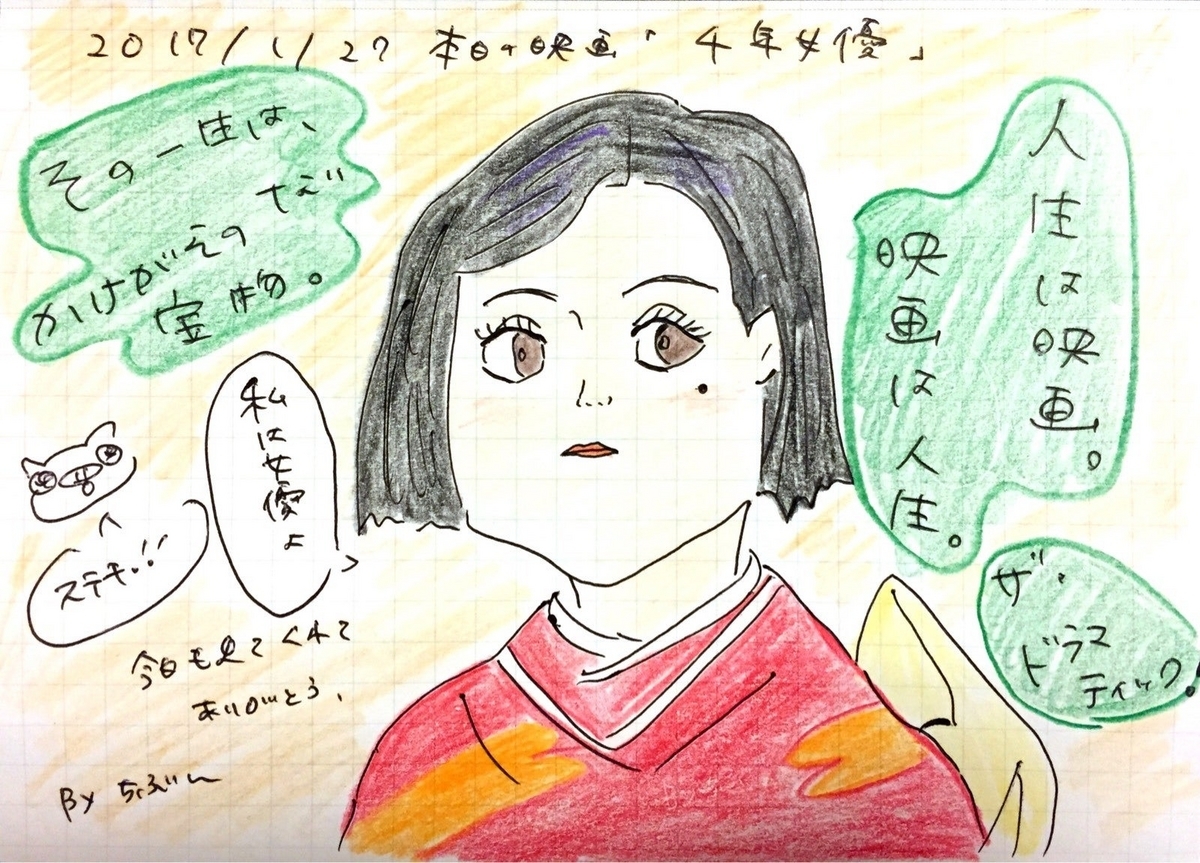 2017/1/27 本日の映画「千年女優」
その一生は、
かけがえの
ない
宝物。
人生は映画。
映画は人生。
私は女優よ
ステキ!!
ザ・
ドラマ
ティック!
今日も見てくれて
ありがとう、
By